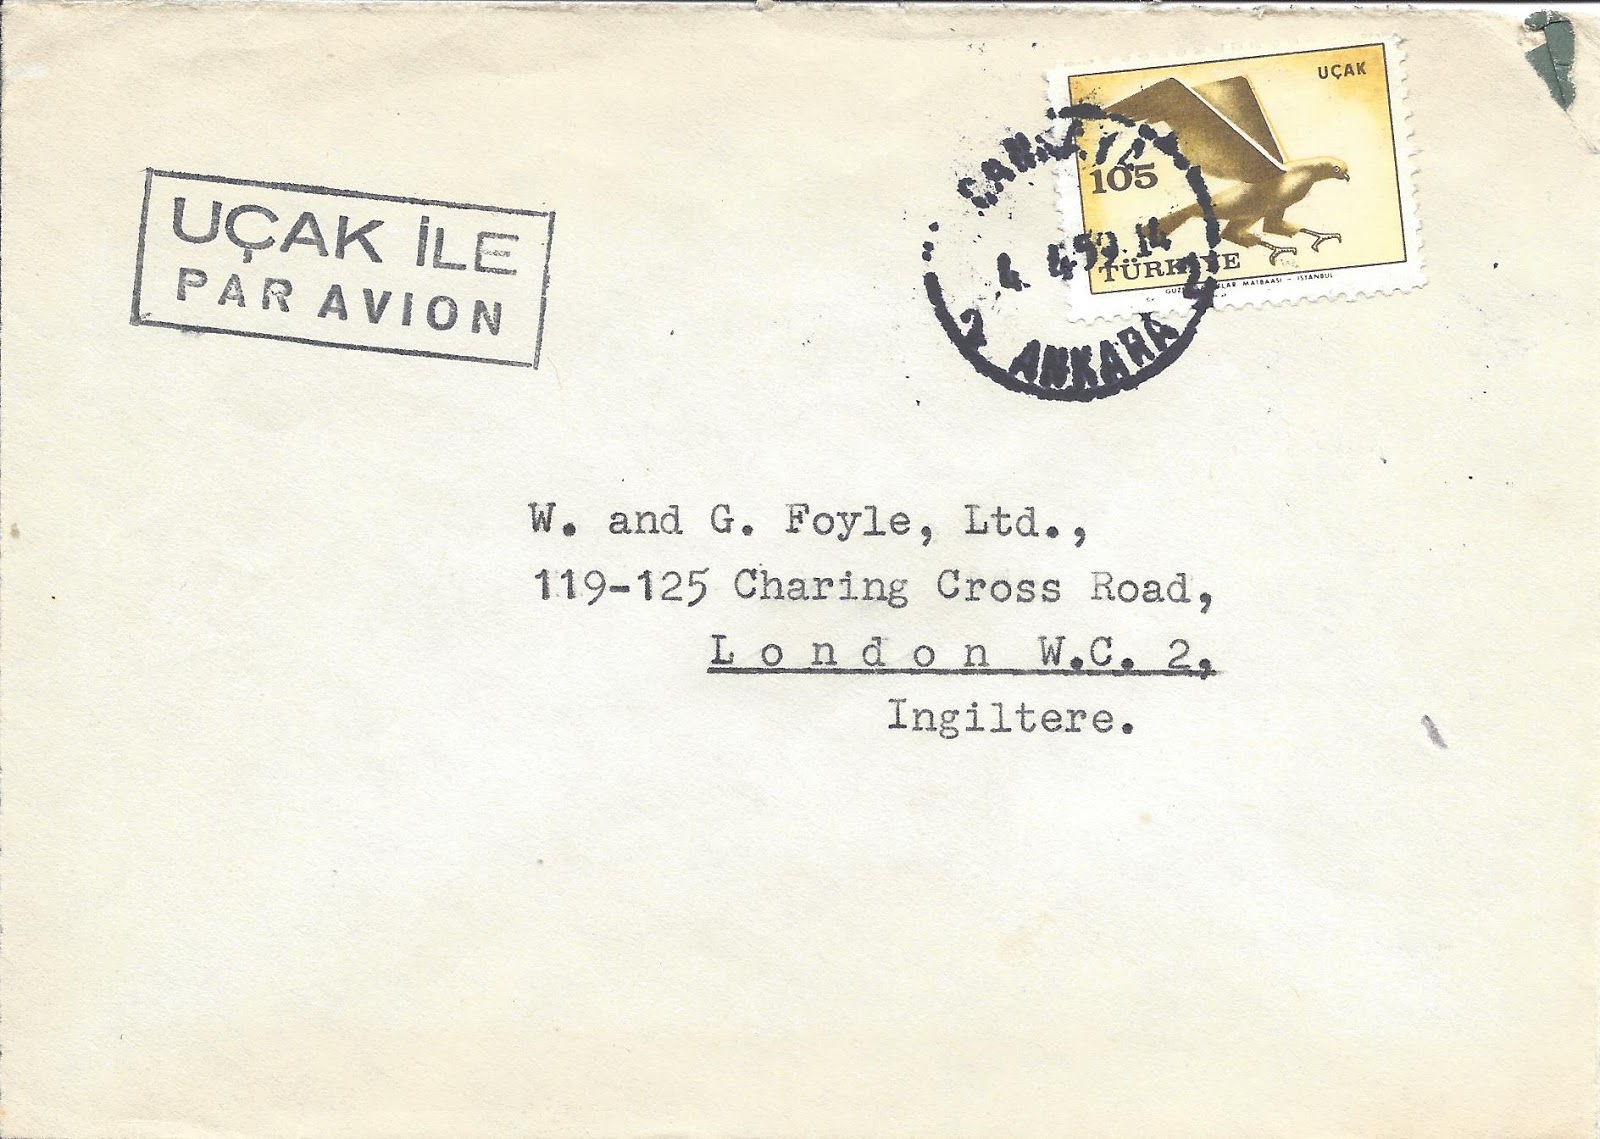 UÇAK İLE
PAR AVION
UÇAK
105
TÜRKİYE
MATBAASI - İSTANBUL
4. 4.59.14
ANKARA
W. and G. Foyle, Ltd.,
119-125 Charing Cross Road,
London W.C. 2,
Ingiltere.